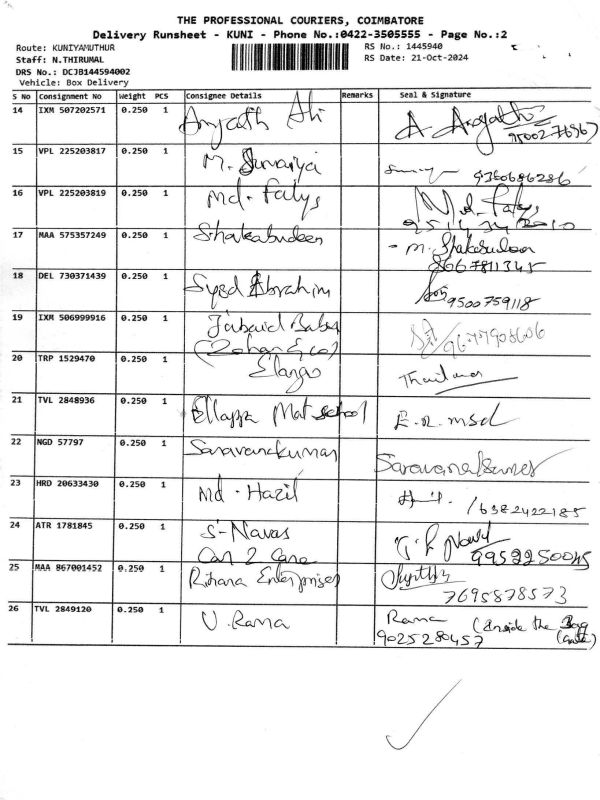 THE PROFESSIONAL COURIERS, COIMBATORE
Delivery Runsheet - KUNI - Phone No.:0422-3505555 - Page No.:2
Route: KUNIYAMUTHUR
RS No.: 1445940
Staff: N.THIRUMAL
RS Date: 21-Oct-2024
DRS No.: DCJB144594002
Vehicle: Box Delivery
S No Consignment No Weight PCS Consignee Details Remarks Seal & Signature
14 IXM 507202571 0.250 1 Ali A.
15 VPL 225203817 0.250 1 M. Sumaiya 9360686286
16 VPL 225203819 0.250 1 Md. Falys Md. Falys
17 MAA 575357249 0.250 1 Shakabudeen - M. Shakabudeen
8667811345
18 DEL 730371439 0.250 1 Syed Ibrahim 9500759118
19 IXM 506999916 0.250 1 Jubaid Babu 9677908606
(Zohan & co)
20 TRP 1529470 0.250 1 Elango
21 TVL 2848936 0.250 1 Ellappa Mat school E.R. msd
22 NGD 57797 0.250 1 Saravanakumar Saravanakumar
23 HRD 20633430 0.250 1 Md. Hazil /6382422185
24 ATR 1781845 0.250 1 S-Navas 9952250045
Car 2 Care
25 MAA 867001452 0.250 1 Rihana Enterprises
7695878573
26 TVL 2849120 0.250 1 V. Rama Rama (Inside the Bag
9025280457 (Gate)